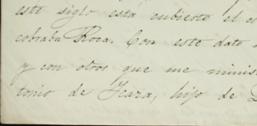 este siglo está cubierto el
cobraba Roca. Con este dato
y con otros que me minis
tonio de Icaza, hijo de